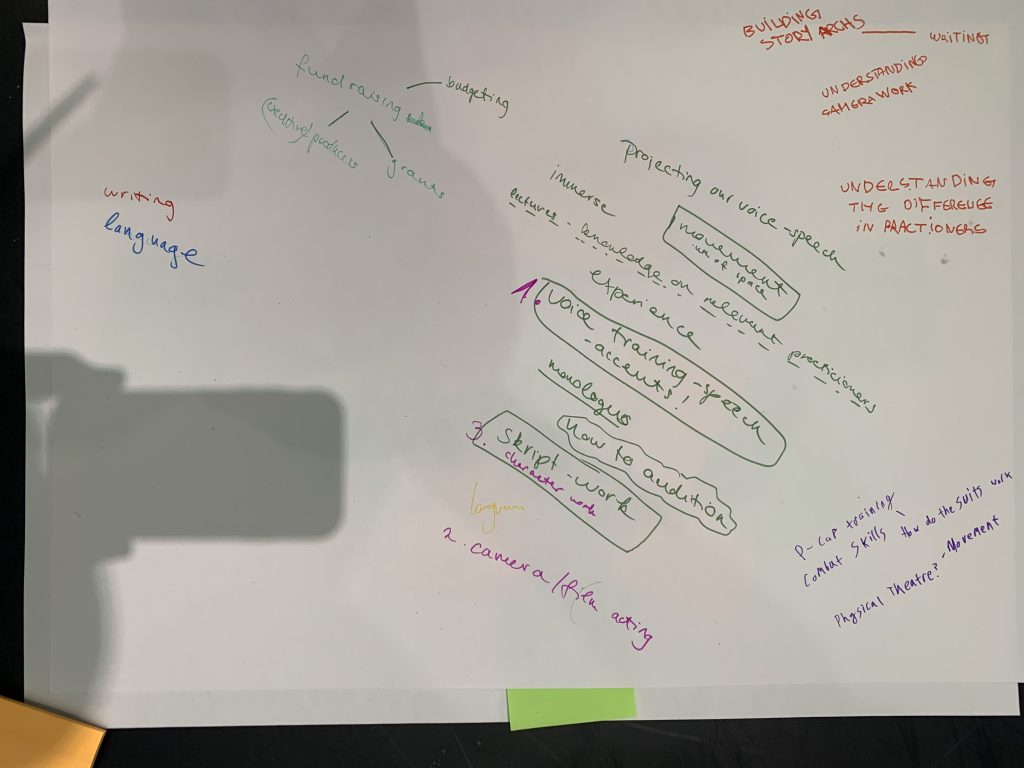 BUILDING
STORY ARCHS
WRITING
UNDERSTANDING
CAMERAWORK
UNDERSTANDING
THE DIFFERENCE
IN PRACTIONERS
fundraising
budgeting
(creative) producers
grants
writing
language
Projecting our voice - speech
immerse
movement
use of space
- knowledge on relevant practicioners
experience
1. Voice training - speech
- accents!
monologus
How to audition
3. Skript-work
character work
language
2. camera/film acting
P-cap training
How do the suits work
Combat skills
Physical Theatre? - Movement